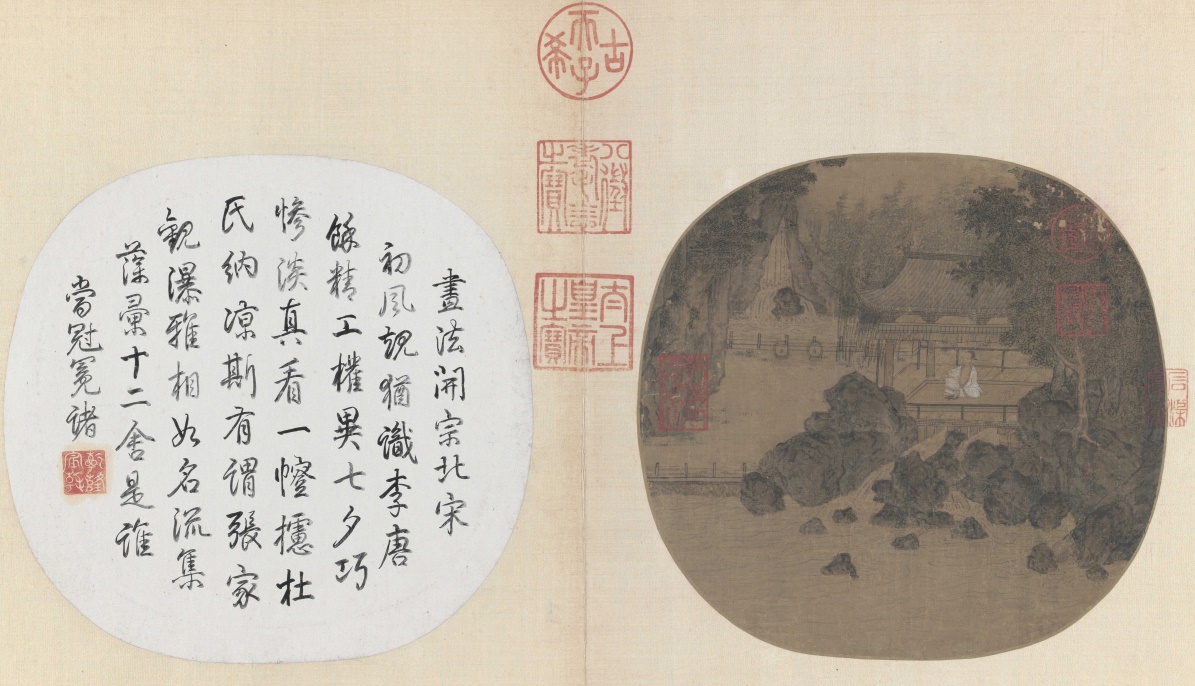 畫法開宗北宋
初風規猶識李唐
餘精工權異七夕巧
慘淡真看一幰攄杜
氏納涼斯有謂張家
觀瀑雅相如名流集
藻彙十二舍是誰
當冠冕諸
乾隆
宸翰
古希
天子
八徵
耄念
之寶
太上
皇帝
之寶